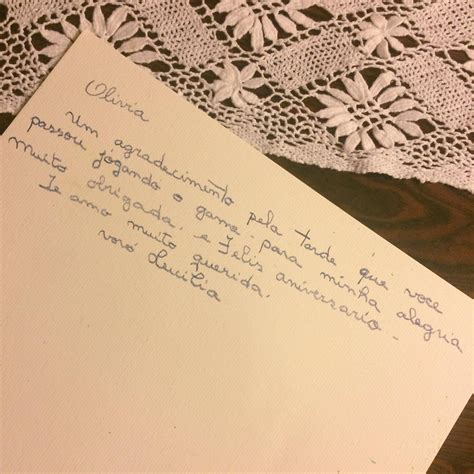 Olivia
Um agradecimento pela tarde que você
passou jogando o game. para minha alegria
Muito obrigada. e Feliz aniversario.
Te amo muito querida.
vovó Lucilia